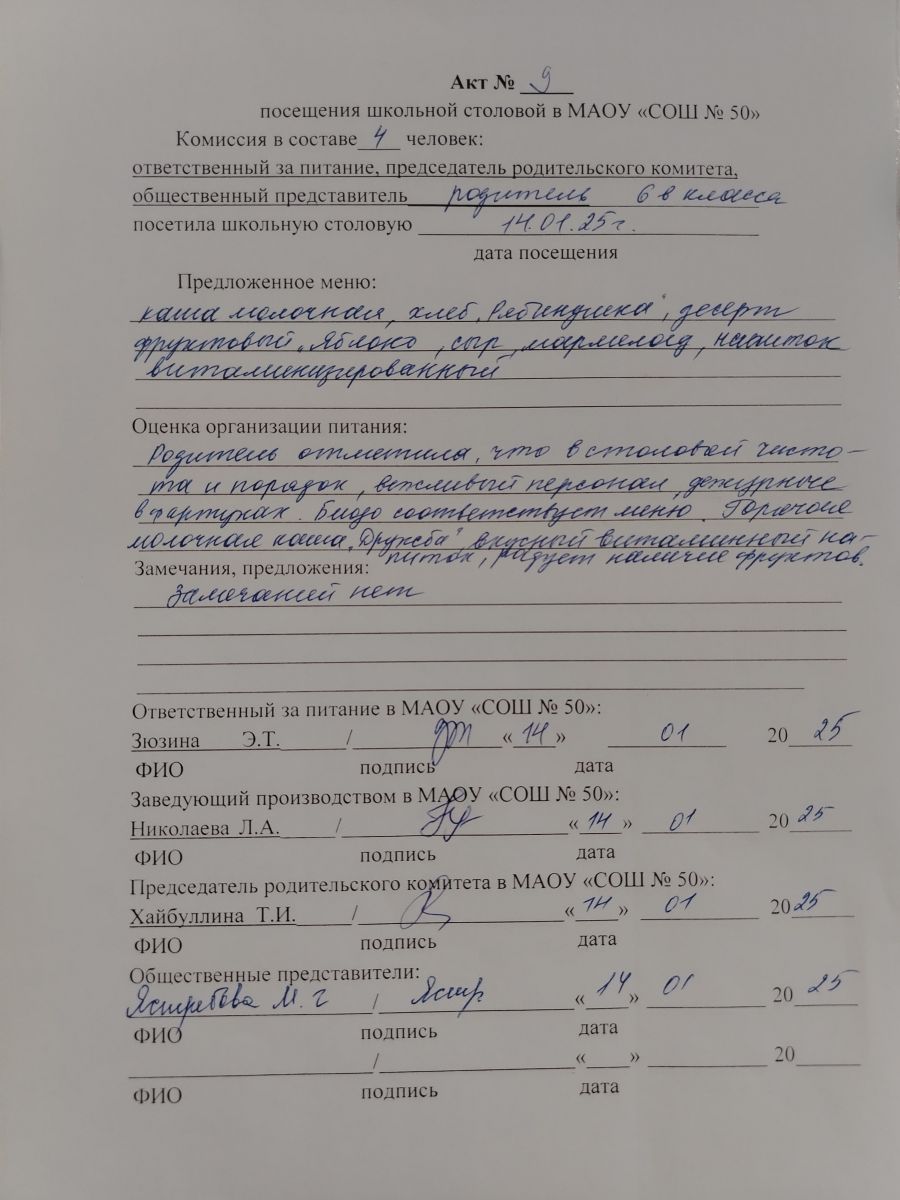 Акт № 9
посещения школьной столовой в МАОУ «СОШ № 50»
Комиссия в составе 4 человек:
ответственный за питание, председатель родительского комитета,
общественный представитель родитель 6 в класса
посетила школьную столовую 14.01.25г.
дата посещения
Предложенное меню:
каша молочная, хлеб "Рябинушка", десерт
фруктовый "Яблоко, сыр, мармелад, напиток
витаминизированный
Оценка организации питания:
Родитель отметила, что в столовой чисто-
та и порядок, вежливый персонал, дежурные
в фартуках. Блюдо соответствует меню. Горячая
молочная каша "Дружба" вкусный витаминный на-
питок, радует наличие фруктов.
Замечания, предложения:
Замечаний нет
Ответственный за питание в МАОУ «СОШ № 50»:
Зюзина Э.Т. / «14» 01 2025
ФИО подпись дата
Заведующий производством в МАОУ «СОШ № 50»:
Николаева Л.А. / «14» 01 2025
ФИО подпись дата
Председатель родительского комитета в МАОУ «СОШ № 50»:
Хайбуллина Т.И. / «14» 01 2025
ФИО подпись дата
Общественные представители:
Ястребова М. Г / Ястр «14» 01 2025
ФИО подпись дата
/ « » 20
ФИО подпись дата